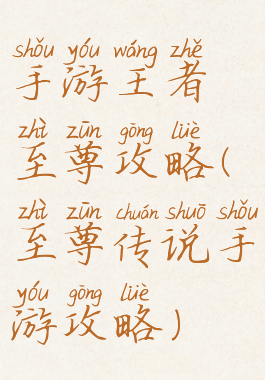 shǒu yóu wáng zhě
手游王者
zhì zūn gōng lüè
至尊攻略(
zhì zūn chuán shuō shǒu
至尊传说手
yóu gōng lüè
游攻略)